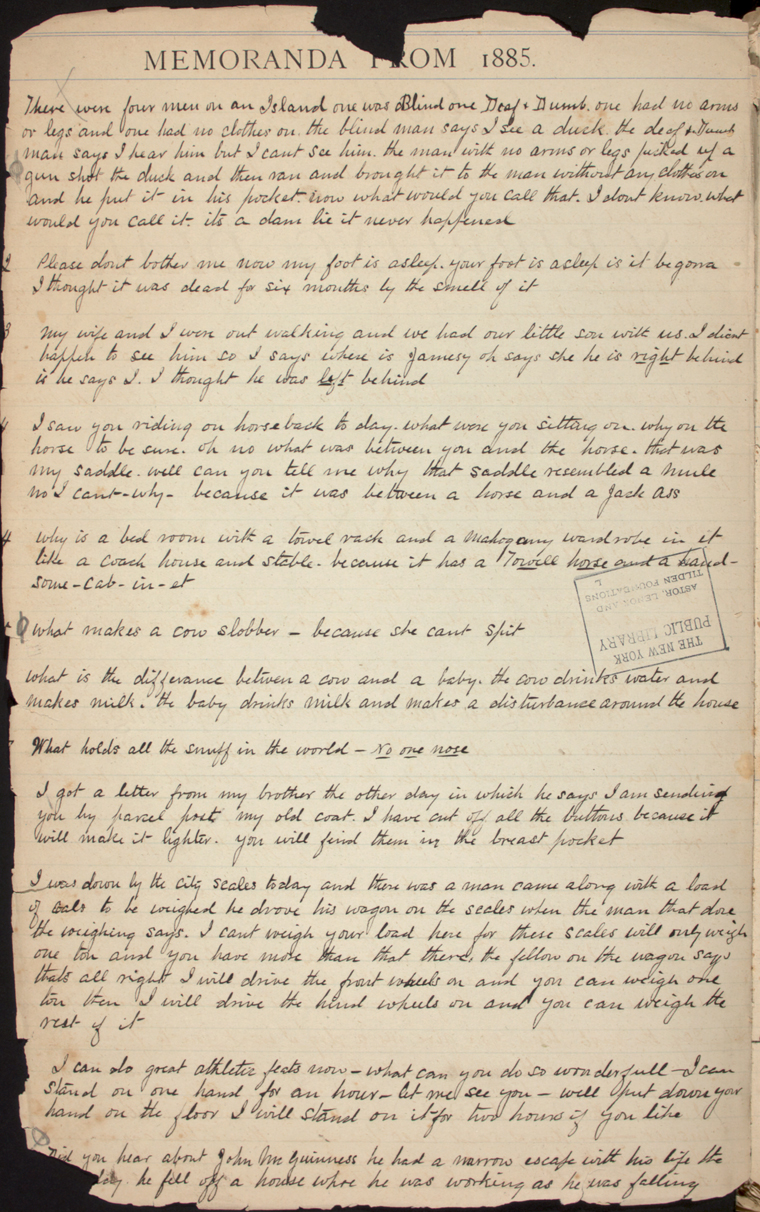 MEMORANDA FROM 1885.
There were four men on an Island one was Blind one Deaf & Dumb. one had no arms
or legs and one had no clothes on. the blind man says I see a duck. the deaf & Dumb
man says I hear him but I cant see him. the man with no arms or legs picked up a
gun shot the duck and then ran and brought it to the man without any clothes on
and he put it in his pocket. now what would you call that. I dont know. what
would you call it. its a dam lie it never happened
2 Please dont bother me now my foot is asleep. your foot is asleep is it begorra
I thought it was dead for six months by the smell of it
3 my wife and I were out walking and we had our little son with us. I didnt
happen to see him so I says where is Jamesy oh says she he is right behind
is he says I. I thought he was left behind
4 I saw you riding on horseback to day. what were you sitting on. why on the
horse to be sure. oh no what was between you and the horse. that was
my saddle. well can you tell me why that saddle resembled a mule
no I cant - why - because it was between a horse and a Jack Ass
4 why is a bed room with a towel rack and a mahogany wardrobe in it
like a coach house and stable. because it has a Towell horse and a hand-
some-cab-in-et
THE NEW YORK
PUBLIC LIBRARY
ASTOR, LENOX AND
TILDEN FOUNDATIONS
L
what makes a cow slobber - because she cant spit
what is the differance betwen a cow and a baby. the cow drinks water and
makes milk. the baby drinks milk and makes a disturbance around the house
What holds all the snuff in the world - No one nose
I got a letter from my brother the other day in which he says I am sending
you by parcel post my old coat. I have cut off all the buttons because it
will make it lighter. you will find them in the breast pocket
I was down by the city scales today and there was a man came along with a load
of to be weighed he drove his wagon on the scales when the man that done
the weighing says. I cant weigh your load here for these scales will only weigh
one ton and you have more than that there. the fellow on the wagon says
thats all right I will drive the front wheels on and you can weigh one
ton then I will drive the hind wheels on and you can weigh the
rest of it
I can do great athletic feats now - what can you do so wonderfull - I can
stand on one hand for an hour - let me see you - well put down your
hand on the floor I will stand on it for two hours if you like
Did you hear about John McGuinness he had a narrow escape with his life the
day he fell off a house whre he was working as he was falling